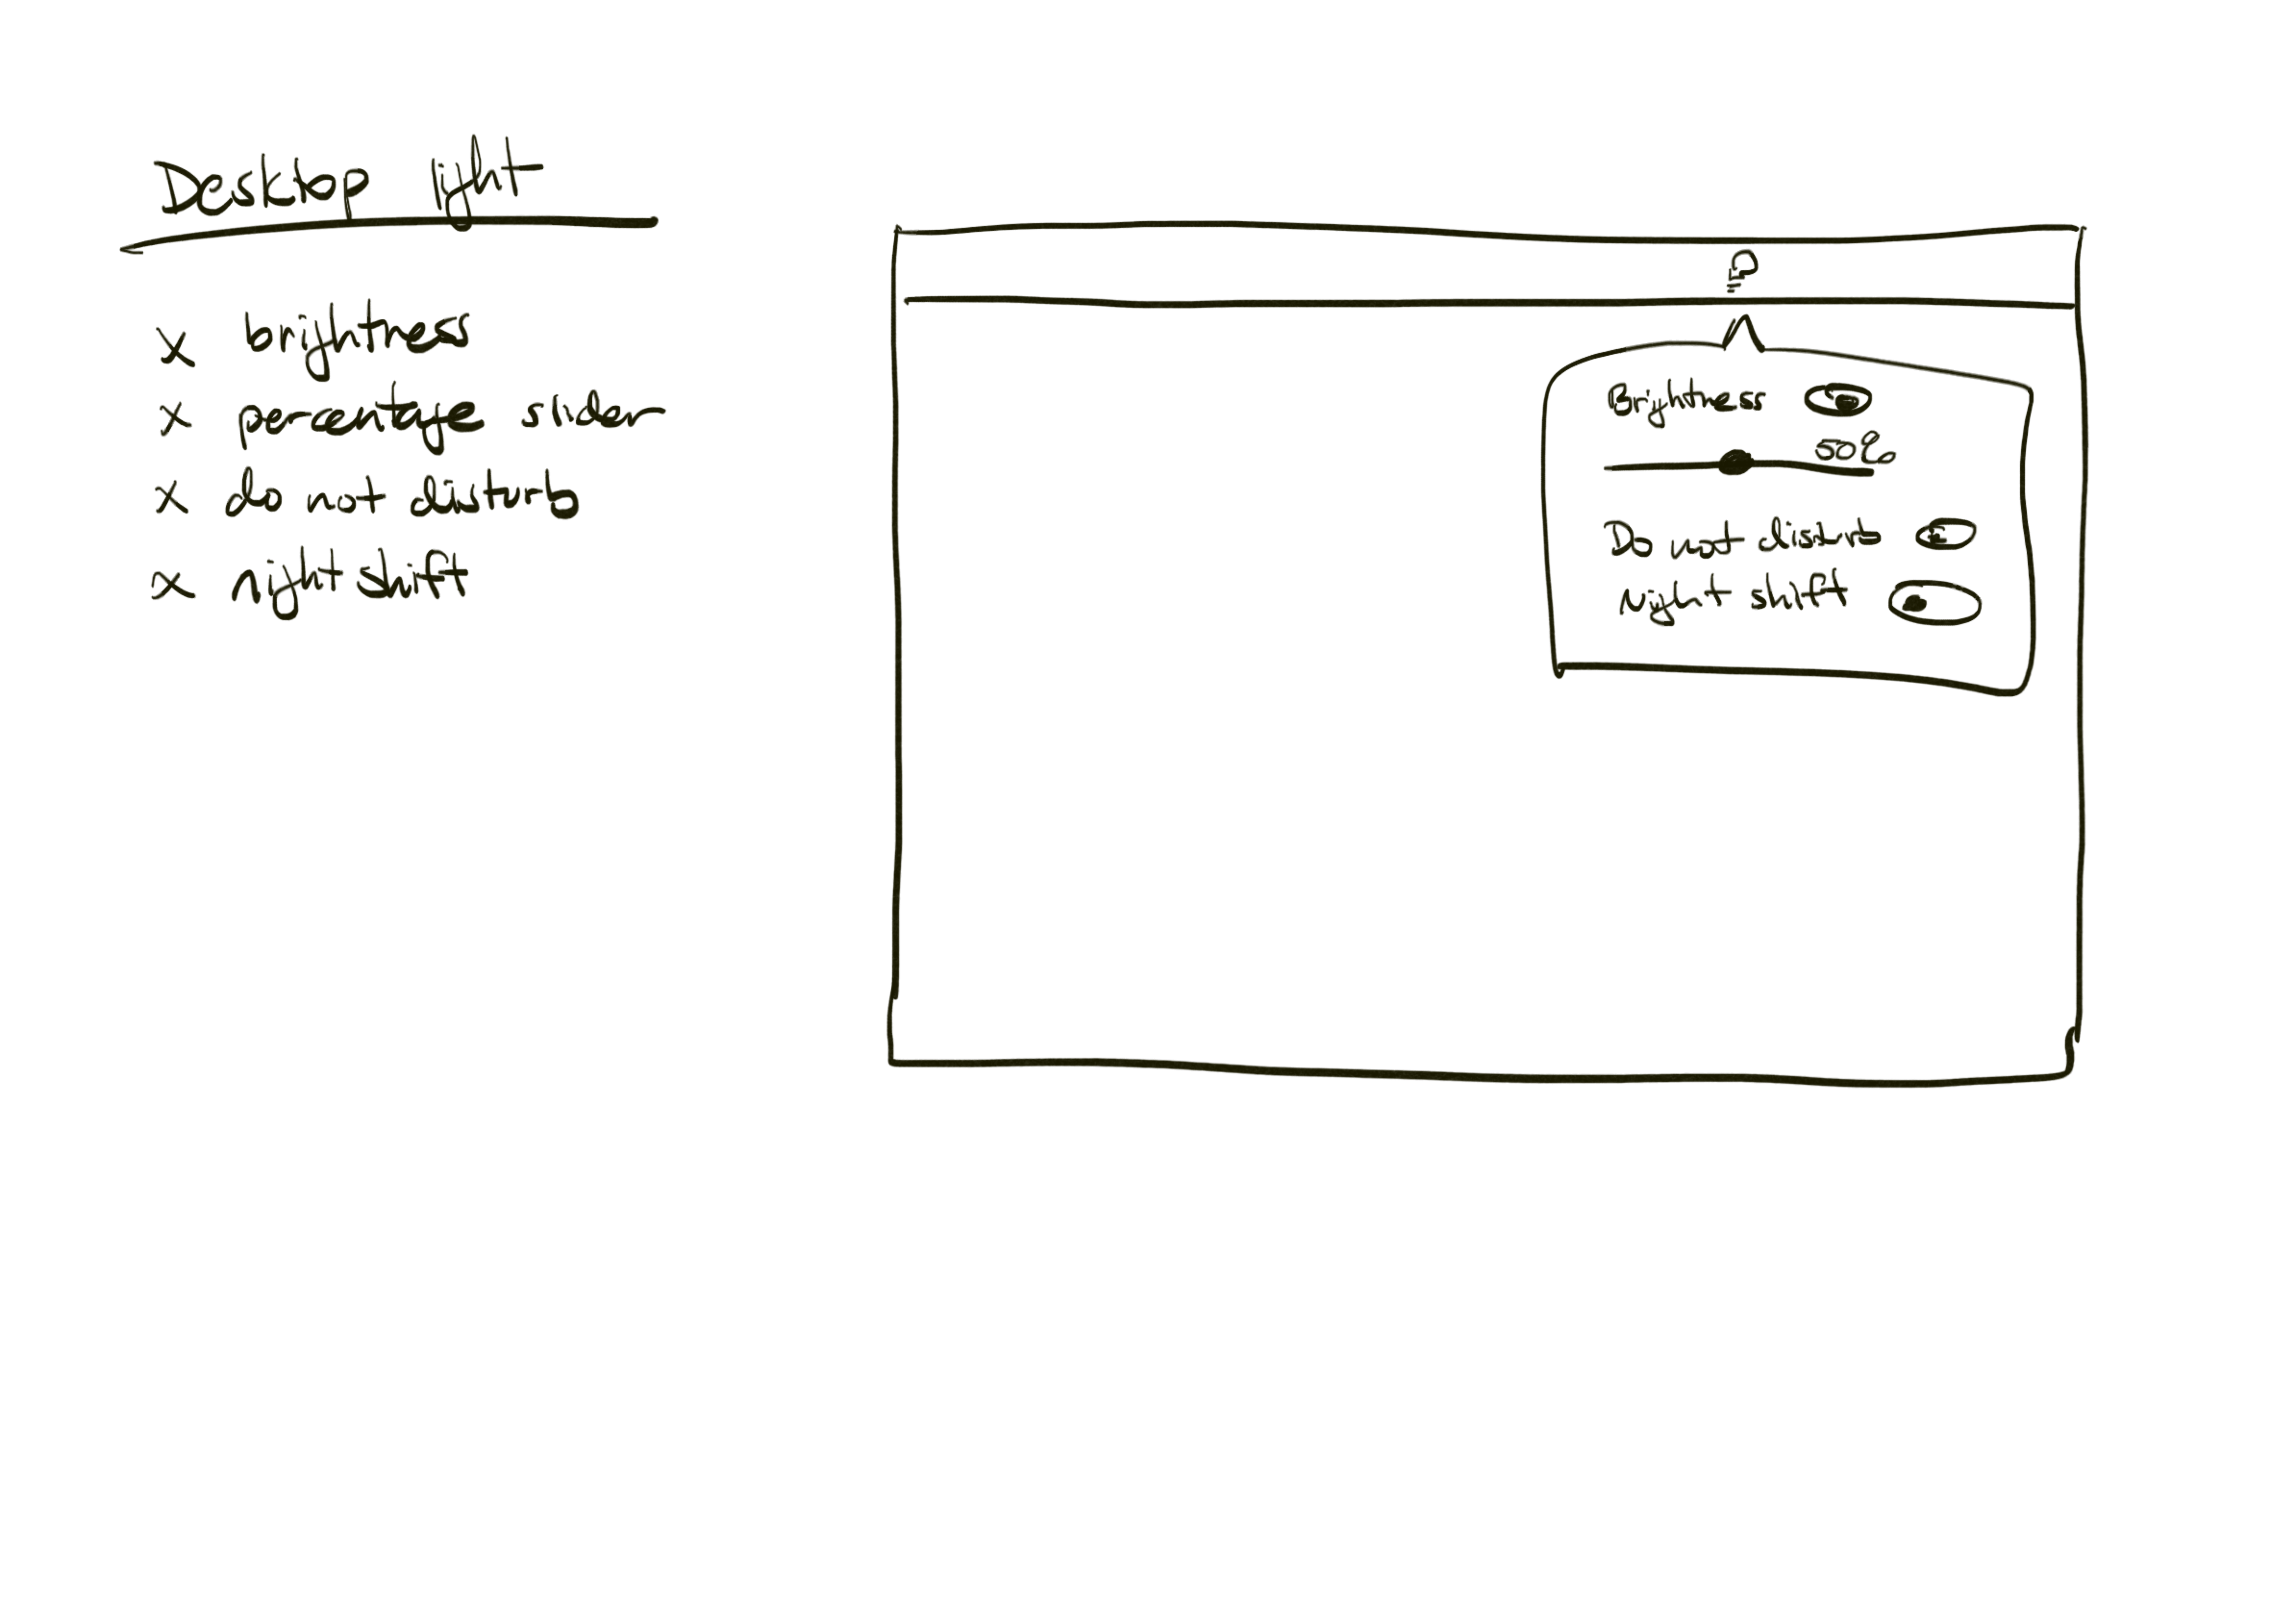 Desktop light
x brightness
x percentage slider
x do not disturb
x night shift
Brightness
50%
Do not disturb
Night shift